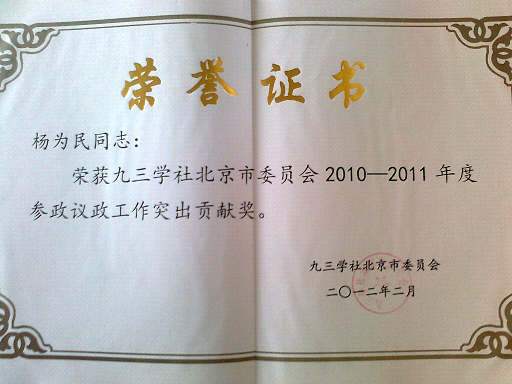 荣誉证书
杨为民同志:
荣获九三学社北京市委员会2010—2011年度
参政议政工作突出贡献奖。
九三学社北京市委员会
二〇一二年二月